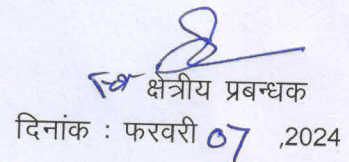 क्षेत्रीय प्रबन्धक
दिनांक : फरवरी 07 ,2024